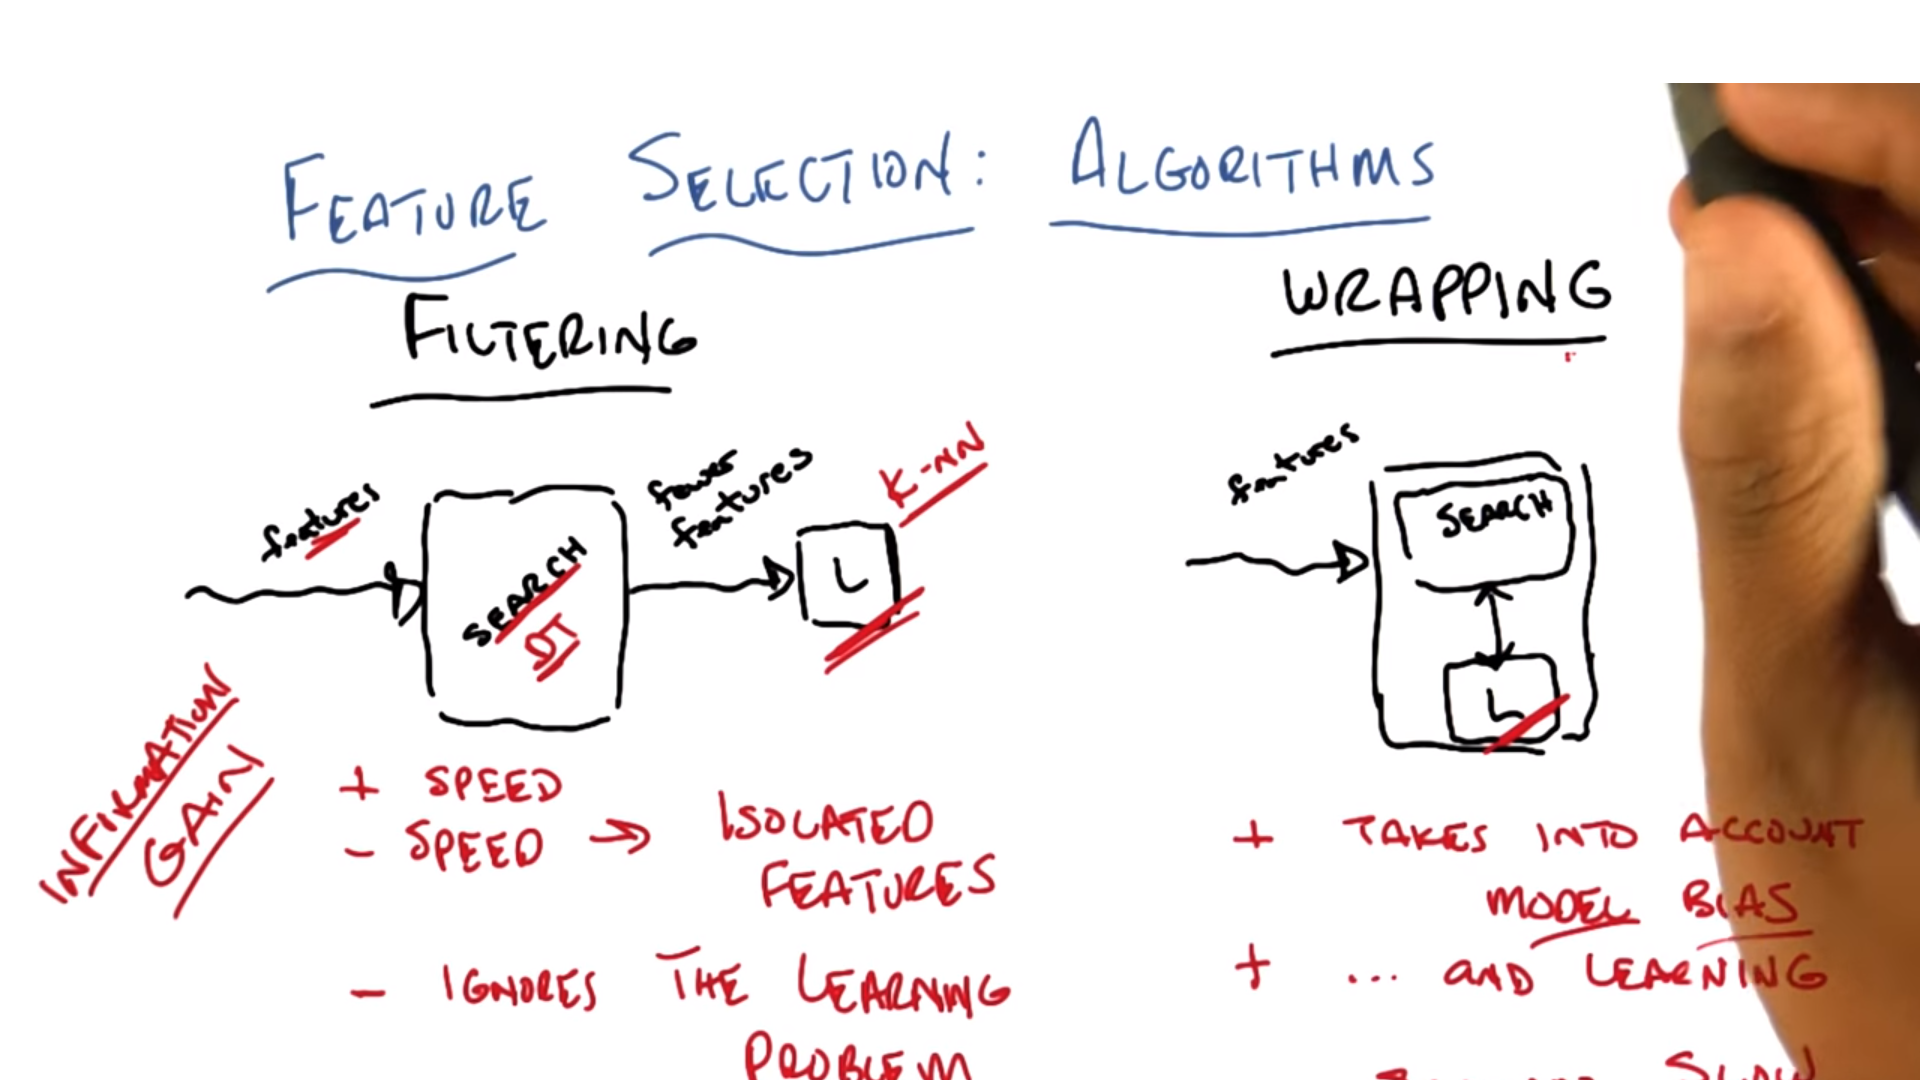 FEATURE SELECTION: ALGORITHMS
FILTERING
features
SEARCH
DT
fewer
features
L
K-NN
INFIRMATION
GAIN
+ SPEED
- SPEED → ISOLATED
FEATURES
- IGNORES THE LEARNING
PROBLEM
WRAPPING
features
SEARCH
L
+ TAKES INTO ACCOUNT
MODEL BIAS
+ ... AND LEARNING
SLOW